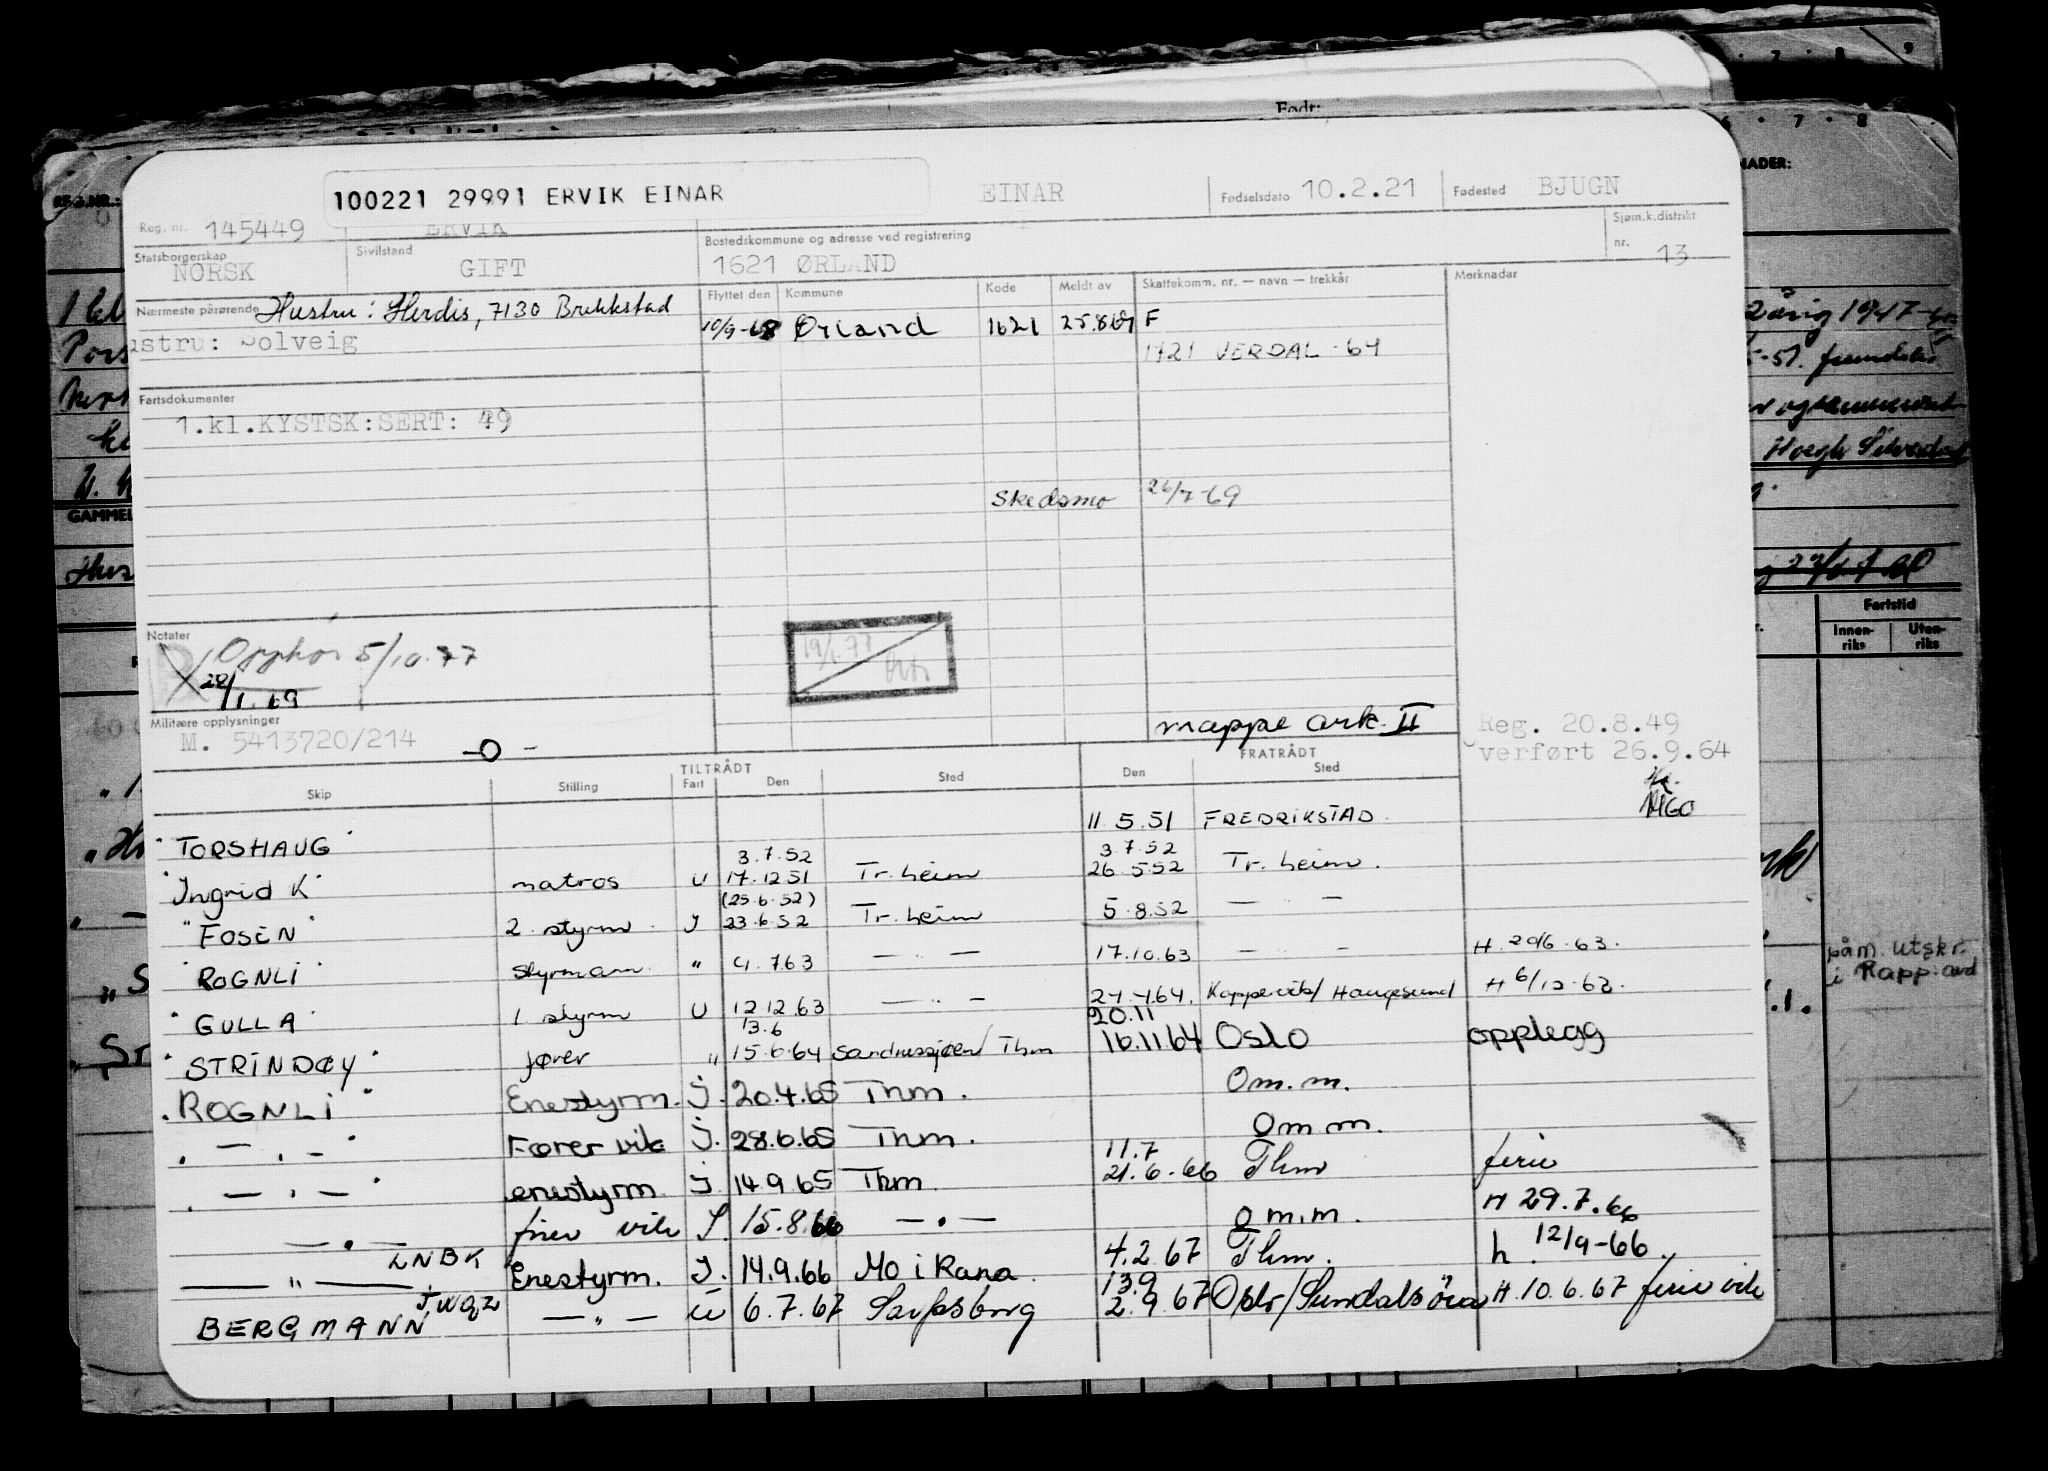 Født:
100221 29991 ERVIK EINAR
EINAR
Fødselsdato 10.2.21
Fødested BJUGN
Reg. nr. 145449
ERVIK
Bostedskommune og adresse ved registrering
1621 ØRLAND
Sjøm.k.distrikt nr. 13
Statsborgerskap NORSK
Sivilstand GIFT
Nærmeste pårørende Hustru: Herdis, 7130 Brekkstad
ustru: Solveig
Flyttet den Kommune Kode Meldt av Skattekomm. nr. — navn — trekkår Merknader
10/9-68 Ørland 1621 25.8.69 F
1721 VERDAL -64
Fartsdokumenter
1.kl.KYSTSK:SERT: 49
Skedsmo 26/7-69
Notater
Opphør 5/10.77
28/1.69
19/1.77
Militære opplysninger
M. 5413720/214 -0-
mappe ark. II
Reg. 20.8.49
verført 26.9.64
TILTRÅDT FRATRÅDT
Skip Stilling Fart Den Sted Den Sted
"TORSHAUG" 11.5.51 FREDRIKSTAD.
3.7.52 3.7.52
"Ingrid K" matros U 17.12.51 Tr.heim 26.5.52 Tr.heim.
(25.6.52)
"FOSEN" 2. styrm. J 23.6.52 Tr.heim 5.8.52 — " —
"ROGNLI" Styrmann " 4.7.63 — " — 17.10.63 — " — H. 20/6.63.
"GULLA" 1 styrm U 12.12.63 — " — 24.4.64. Koppervik/Haugesund H 6/12.63.
13.6 20.11
"STRINDØY" fører " 15.6.64 Sandnessjøen/Thm 16.11.64 Oslo opplegg
"ROGNLI" Enestyrm. J. 20.4.65 Thm. Om.m.
" — " — " Fører vik J. 28.6.65 Thm. Om m.
11.7
" — " — " enestyrm. J. 14.9.65 Thm. 21.6.66 Thm ferie
— " — fører vik J. 15.8.66 — " — om.m. H 29.7.66
LNBK
— " — Enestyrm. J. 14.9.66 Mo i Rana. 4.2.67 Thm. h. 12/9-66.
JWQZ 13.9
BERGMANN — " — U 6.7.67 Sarpsborg 2.9.67 Oslo/Sundalsöra H.10.6.67 ferie vik
GAMMEL
Fartstid
Innenriks Utenriks
påm. utskr.